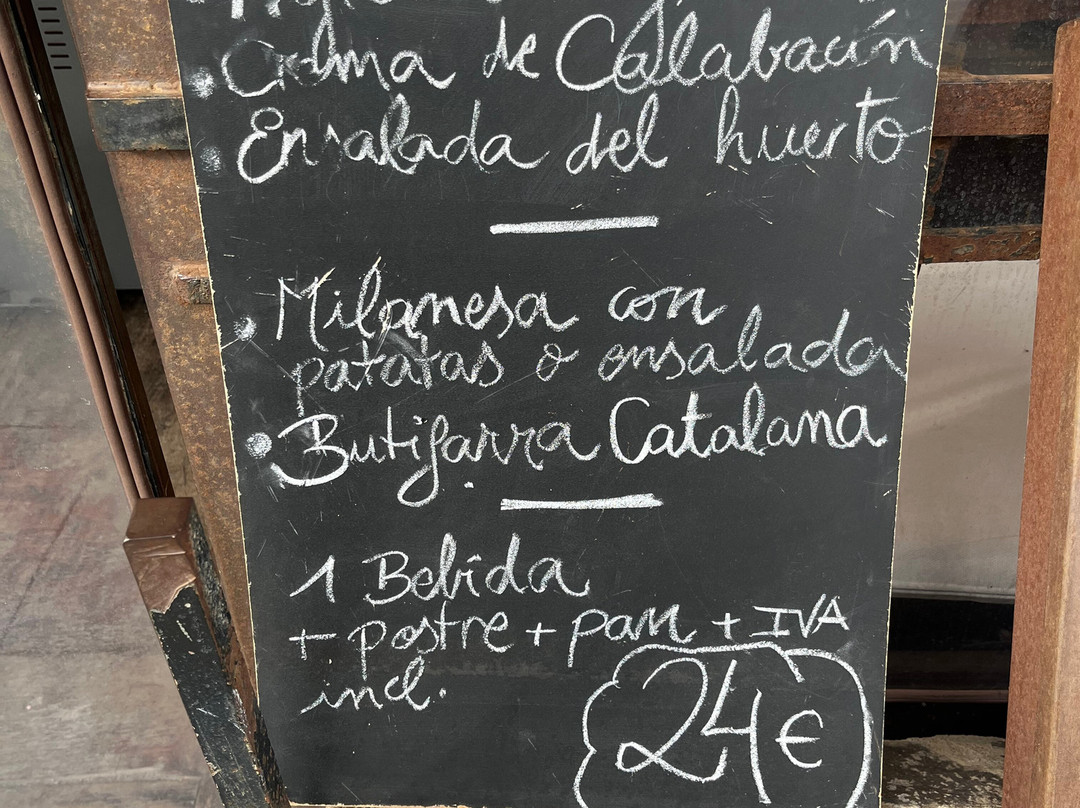 Crema de Calabacín
Ensalada del huerto
Milanesa con
patatas o ensalada
Butifarra Catalana
1 Bebida
+ postre + pan + IVA
incl.
24€